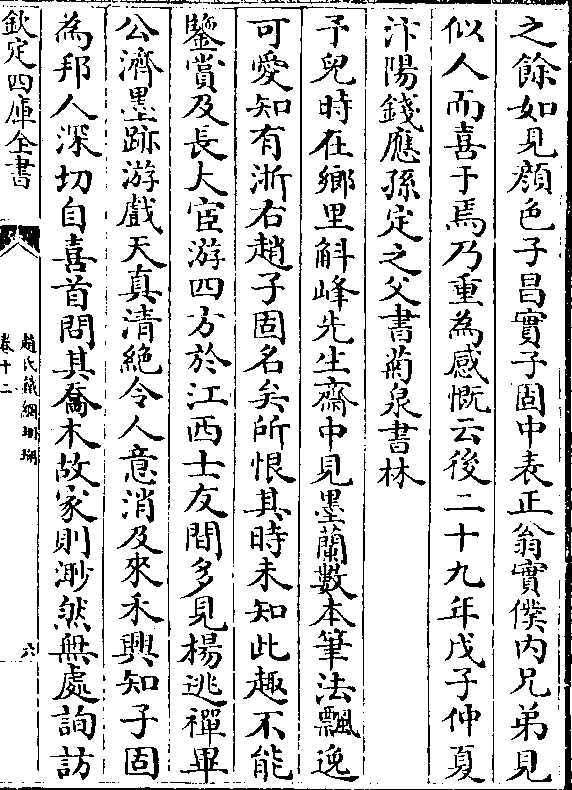 之餘如見顔色子昌實子固中表正翁實僕内兄弟見
似人而喜于焉乃重為感慨云後二十九年戊子仲夏
汴陽錢應孫定之父書菊泉書林
予兒時在鄉里斛峰先生齋中見墨蘭數本筆法飄逸
可愛知有浙右趙子固名矣所恨其時未知此趣不能
鑒賞及長大宦游四方於江西士友間多見楊逃禪畢
公濟墨跡游戲天真清絶令人意消及來永興知子固
為邦人深切自喜首問其喬木故家則渺然無處詢訪
欽定四庫全書
趙氏鐵網珊瑚
卷十二
六